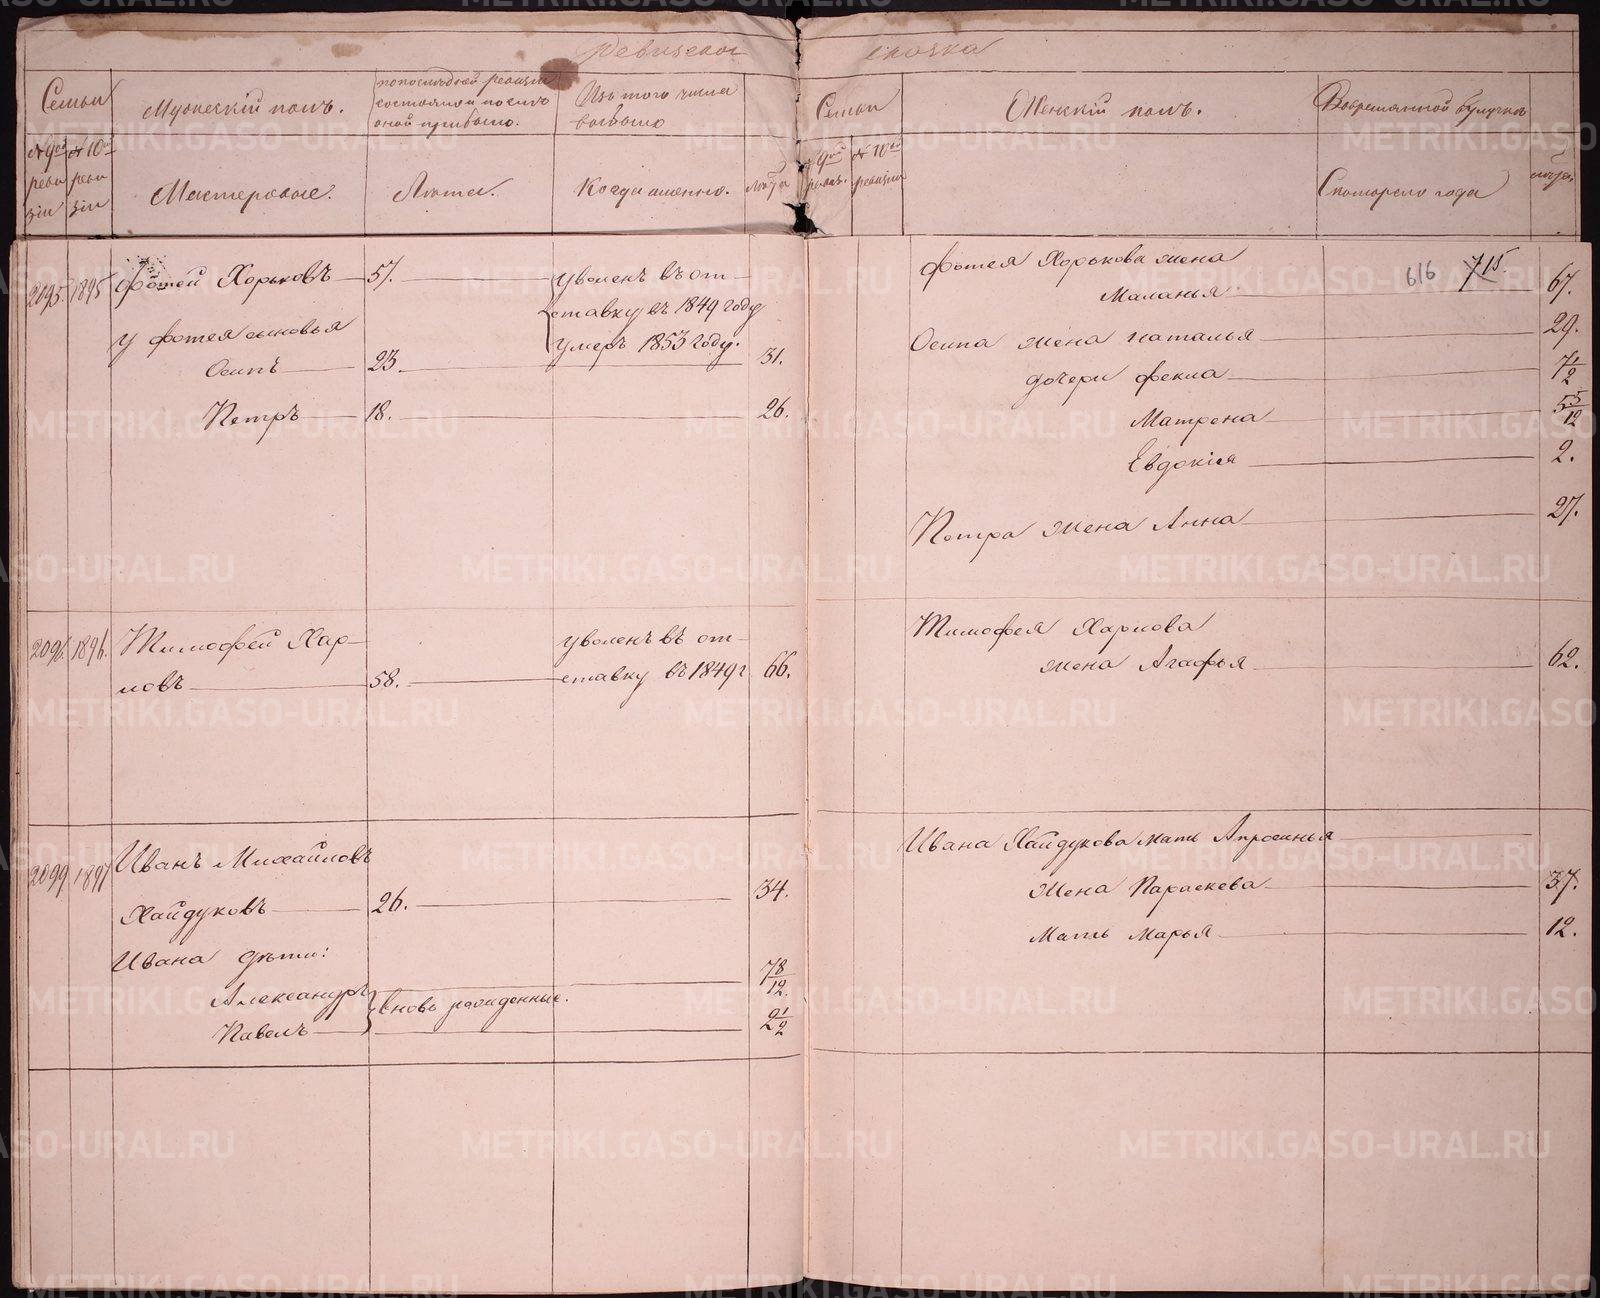 Ревизская сказка
Семьи
Мужеский полъ.
по последней ревизии
состояло и после
оной прибыло.
Изъ того числа
выбыло
№ 9ой ревизіи
№ 10ой ревизіи
Мастеровые.
Лета.
Когда именно.
лета
Семьи
Женскій полъ.
Вовременной отлучке
№ 9ой ревиз.
№ 10ой ревизіи
С которого года
лета.
616 715.
2095. 1895 Фотей Хорьковъ 57. уволенъ въ от-
ставку въ 1849 году
умеръ 1853 году.
у Фотея сыновья
Осипъ 23. 31.
Петръ 18. 26.
Фотея Хорькова жена
Маланья 67.
Осипа жена Наталья 29.
дочери Фекла 7 1/2
Матрена 5 5/12
Евдокія 2.
Петра жена Анна 27.
2096. 1896. Тимофей Хар-
ловъ 58. уволенъ въ от-
ставку въ 1849 г 66.
Тимофея Харлова
жена Агафья 62.
2099 1897 Иванъ Михайловъ
Хайдуковъ 26. 34.
Ивана дети:
Александръ вновь рожденные. 7 8/12.
Павелъ 2 1/2
Ивана Хайдукова мать Апросинья
жена Параскева 37.
мать Марья 12.
METRIKI.GASO-URAL.RU